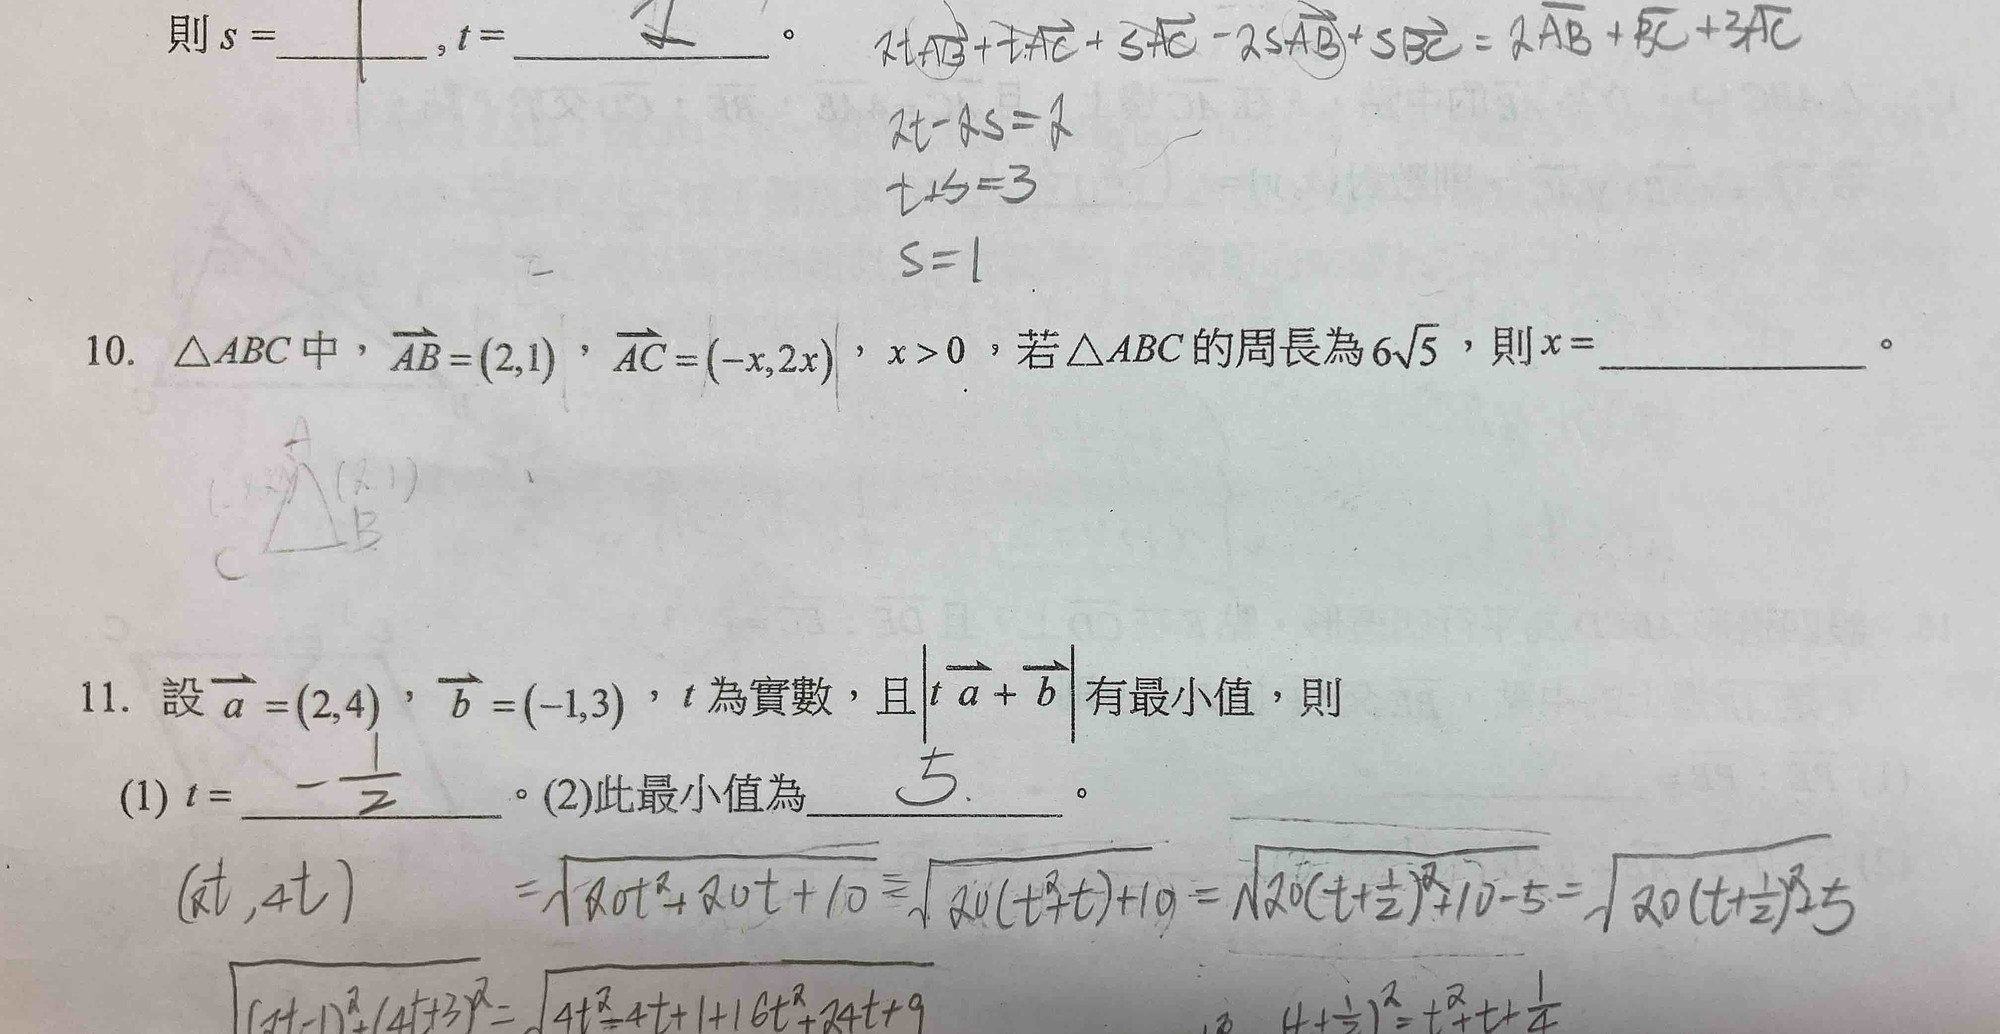 則 s = 1 , t = 2 。
2t\overrightarrow{AB}+t\overrightarrow{AC}+s\overrightarrow{AC}-2s\overrightarrow{AB}+s\overrightarrow{BC}=2\overrightarrow{AB}+\overrightarrow{BC}+3\overrightarrow{AC}
2t-2s=2
t+s=3
s=1
10. △ABC 中，\overrightarrow{AB}=(2,1)，\overrightarrow{AC}=(-x,2x)，x>0，若△ABC 的周長為 6√5，則 x=______。
A
(2,1)
B
C
11. 設 \overrightarrow{a}=(2,4)，\overrightarrow{b}=(-1,3)，t 為實數，且|t\overrightarrow{a}+\overrightarrow{b}|有最小值，則
(1) t = -1/2 。(2)此最小值為 5. 。
(2t,4t) =√(20t²+20t+10) =√(20(t²+t)+10) =√(20(t+1/2)²+10-5) =√(20(t+1/2)²+5)
√((2t-1)²+(4t+3)²) =√(4t²-4t+1+16t²+24t+9) (t+1/2)²=t²+t+1/4